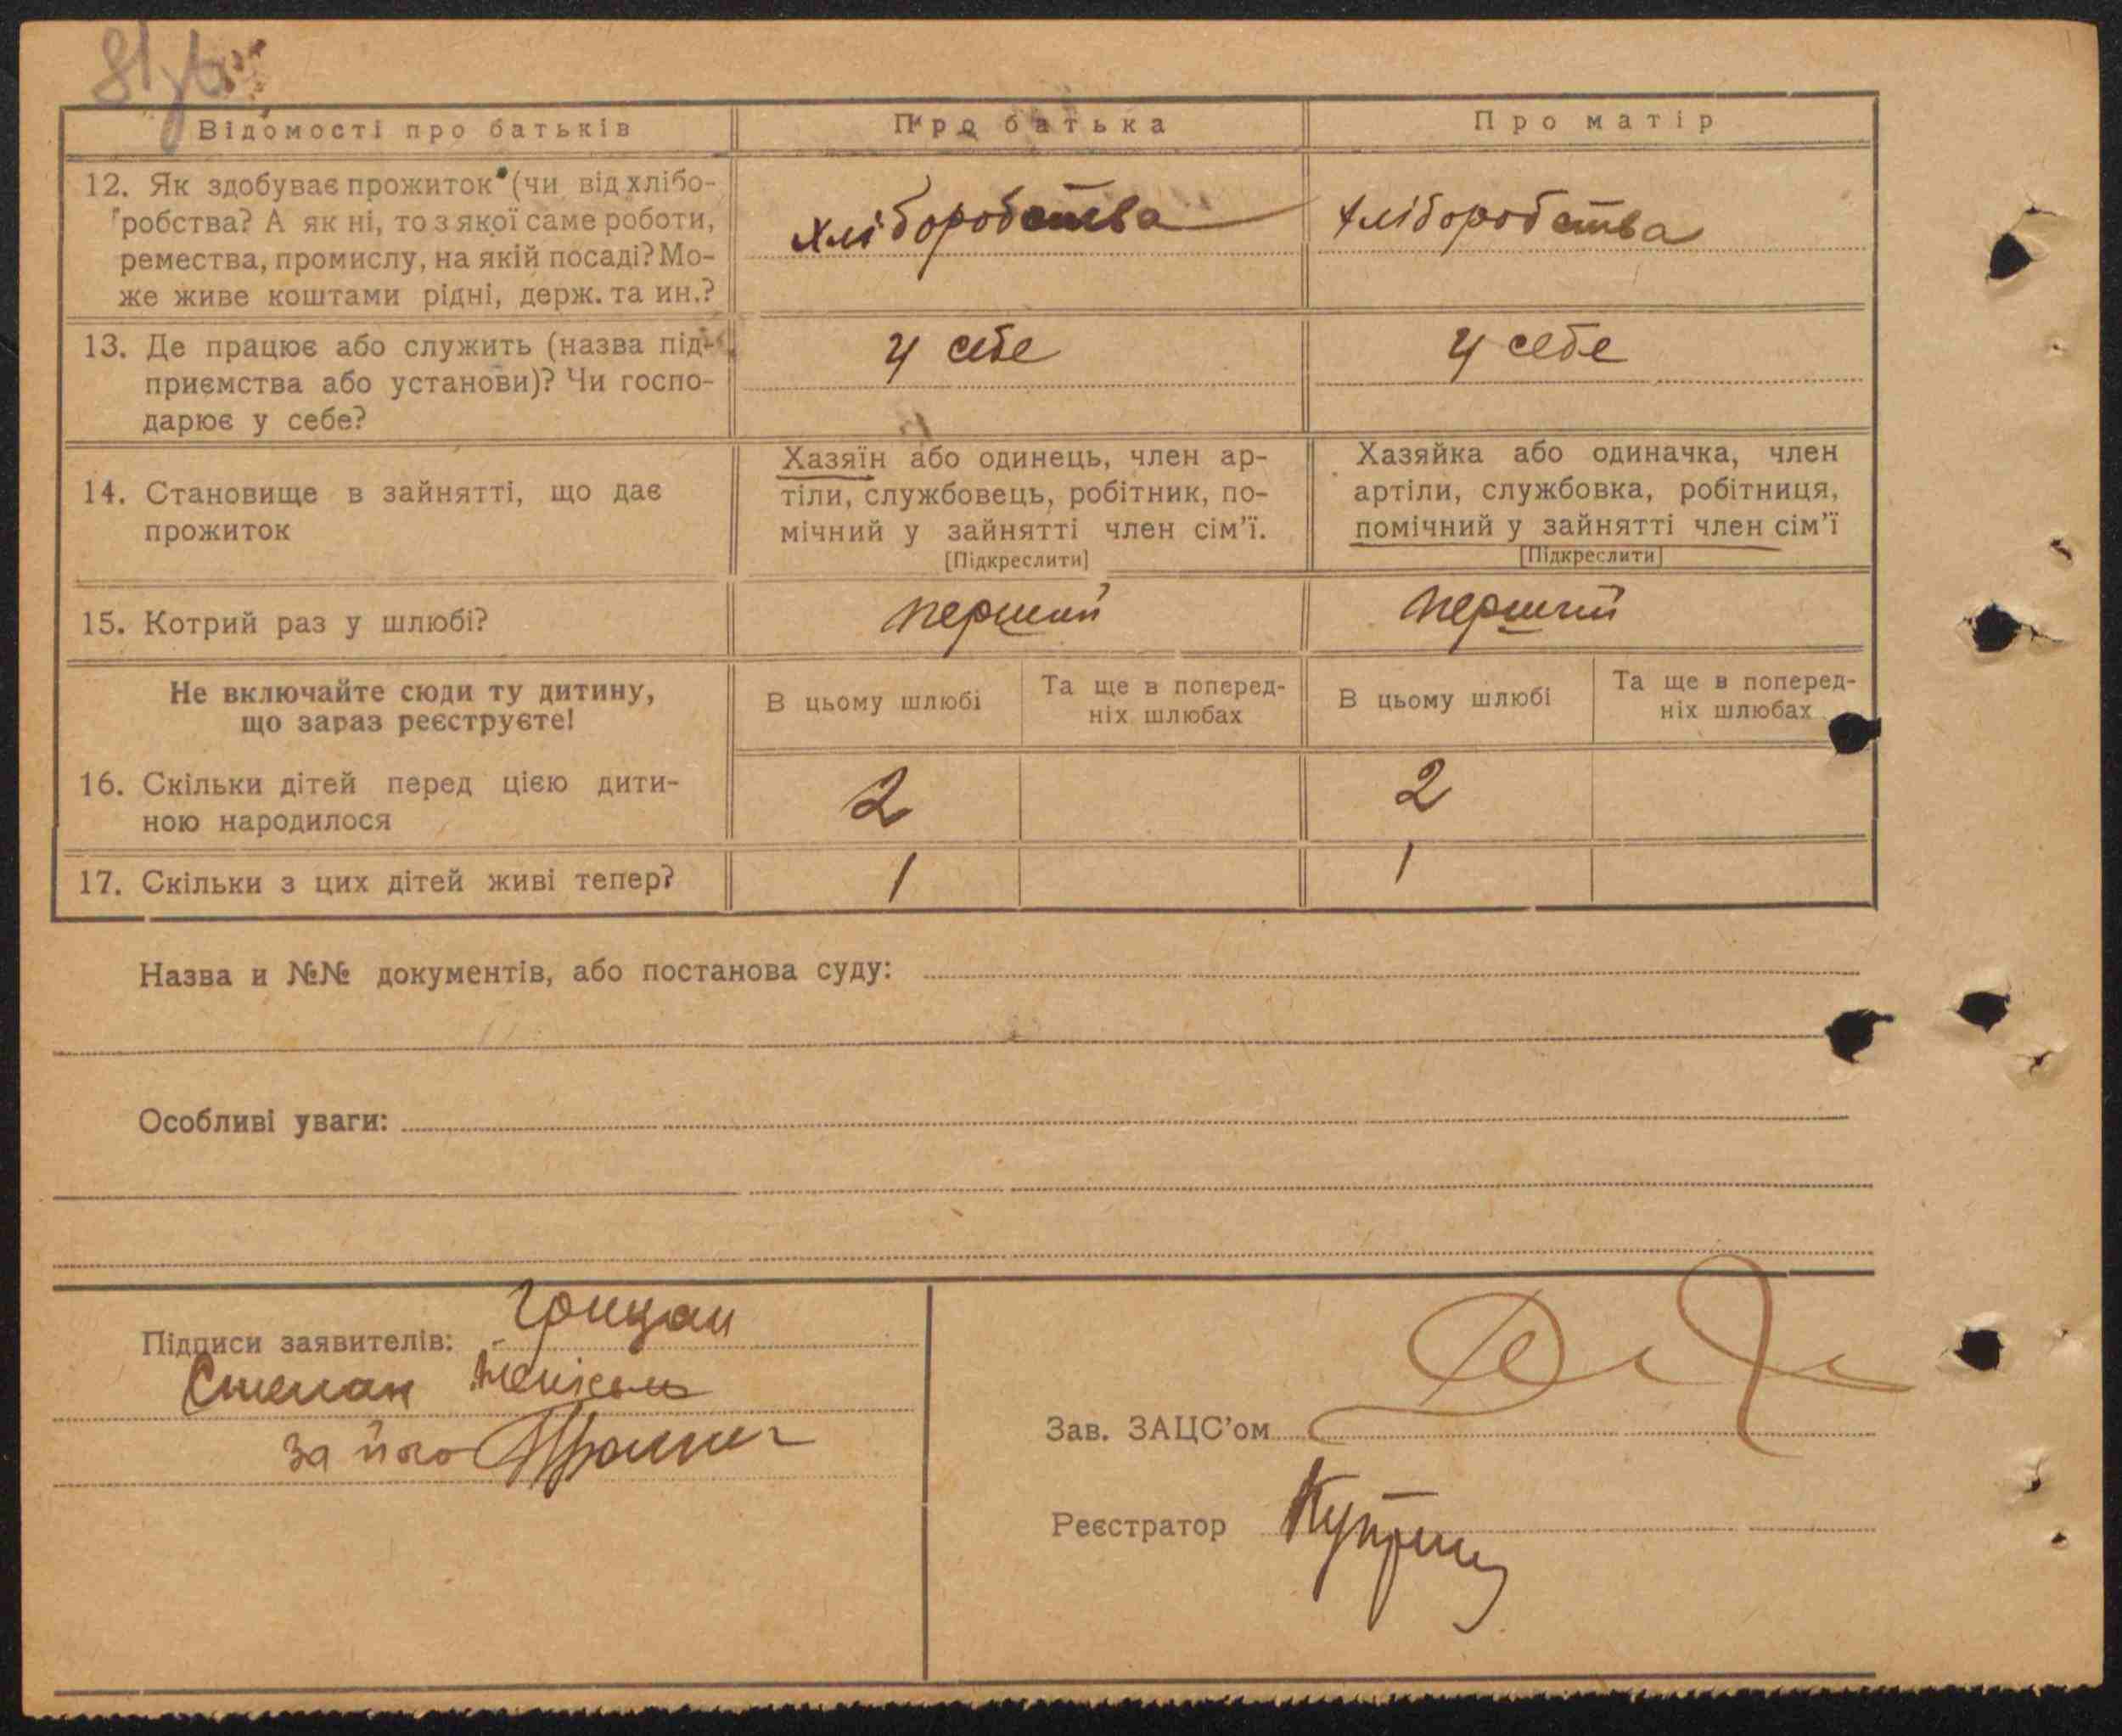 Відомості про батьків
Про батька
Про матір
12. Як здобуває прожиток (чи від хлібо-
робства? А як ні, то з якої саме роботи,
ремества, промислу, на якій посаді? Мо-
же живе коштами рідні, держ. та ин.?
хліборобства
хліборобства
13. Де працює або служить (назва під-
приємства або установи)? Чи госпо-
дарює у себе?
у себе
у себе
14. Становище в зайнятті, що дає
прожиток
Хазяїн або одинець, член ар-
тіли, службовець, робітник, по-
мічний у зайнятті член сім’ї.
[Підкреслити]
Хазяйка або одиначка, член
артіли, службовка, робітниця,
помічний у зайнятті член сім’ї
[Підкреслити]
15. Котрий раз у шлюбі?
перший
перший
Не включайте сюди ту дитину,
що зараз реєструєте!
В цьому шлюбі
Та ще в поперед-
ніх шлюбах
В цьому шлюбі
Та ще в поперед-
ніх шлюбах
16. Скільки дітей перед цією дити-
ною народилося
2
2
17. Скільки з цих дітей живі тепер?
1
1
Назва и №№ документів, або постанова суду:
Особливі уваги:
Підписи заявителів:
Грицан
Степан
за його
Зав. ЗАЦС’ом
Реєстратор